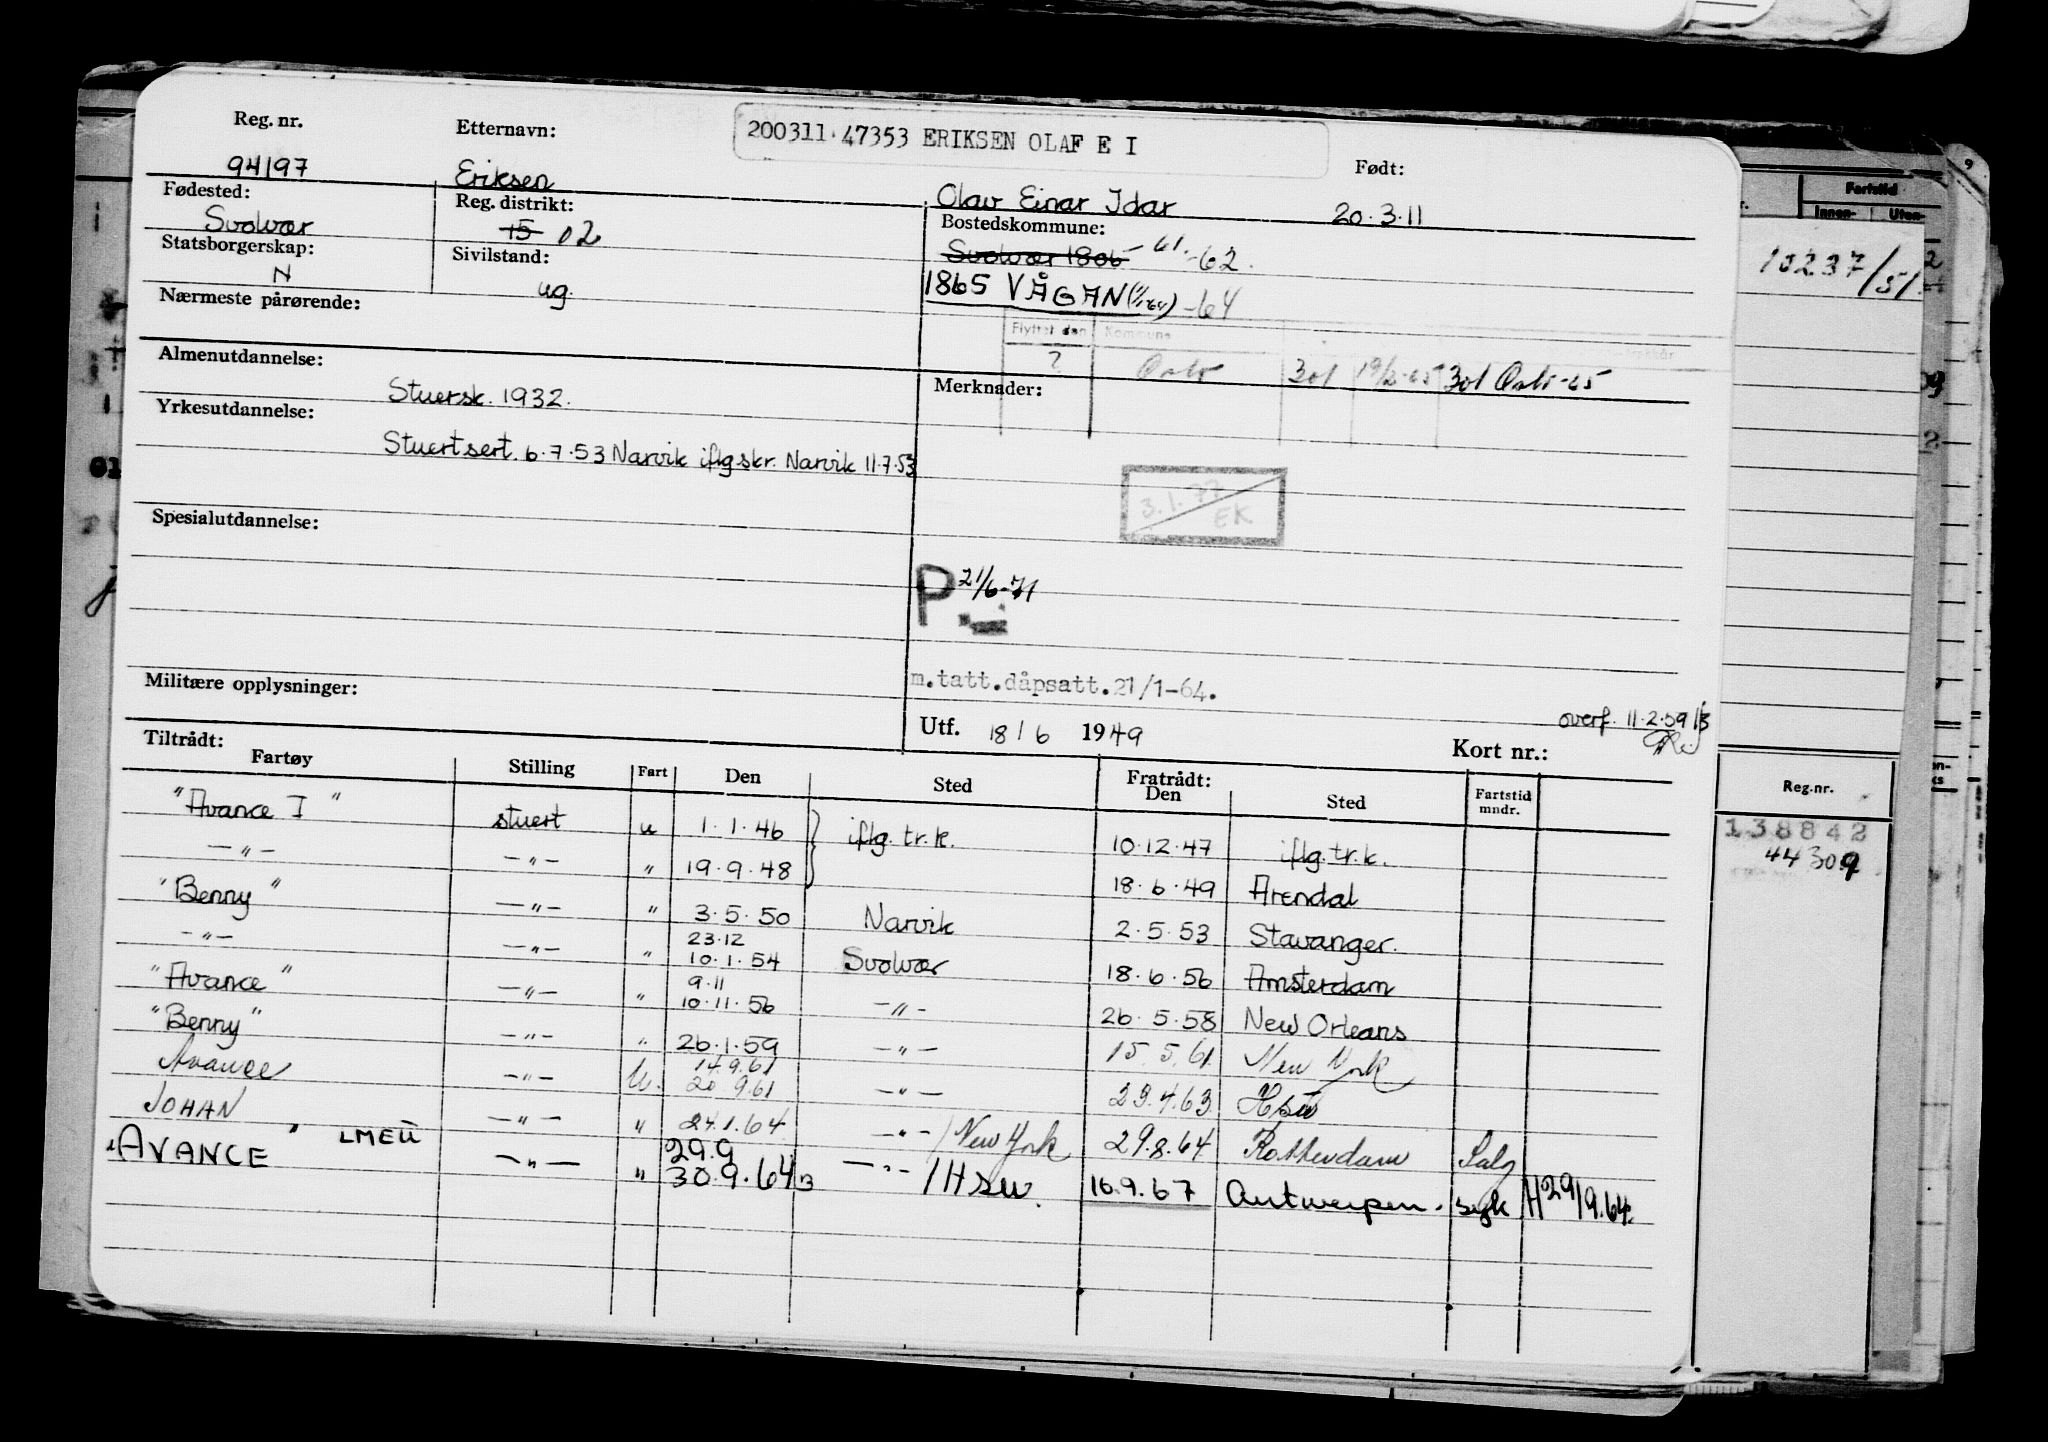 200311 47353 ERIKSEN OLAF E I
Reg. nr. Etternavn: Født:
94197 Eriksen Olav Einar Idar 20.3.11
Fødested: Reg. distrikt: Bostedskommune:
Svolvær 15 02 Svolvær 1806 -61.-62.
Statsborgerskap: Sivilstand:
N ug. 1865 VÅGAN (1/1-64) -64
Nærmeste pårørende:
Flyttet den Kommune
? Oslo 301 19/2-65 301 Oslo-65
Almenutdannelse: Merknader:
Stuersk. 1932.
Yrkesutdannelse:
Stuertsert. 6.7.53 Narvik iflg skr. Narvik 11.7.53
3.1.77
EK
Spesialutdannelse:
P 21/6-71
m.tatt.dåpsatt.21/1-64.
Militære opplysninger:
Utf. 18/6 1949 overf. 11.2.59
Kort nr.:
Tiltrådt: Fratrådt:
Fartøy Stilling Fart Den Sted Den Sted Fartstid mndr.
"Avance I" stuert u 1.1.46 iflg. tr.k. 10.12.47 iflg. tr.k.
-"- -"- " 19.9.48 18.6.49 Arendal
"Benny" -"- " 3.5.50 Narvik 2.5.53 Stavanger.
23.12
-"- -"- " 10.1.54 Svolvær 18.6.56 Amsterdam
9.11
"Avance" -"- " 10.11.56 -"- 26.5.58 New Orleans
"Benny" -"- " 26.1.59 -"- 15.5.61 New York
14.9.61
Avance -"- U. 20 9.61 -"- 23.4.63 Hsw
JOHAN -"- " 24.1.64 -"- / New York 29.8.64 Rotterdam Salg
29.9
"AVANCE" LMEU -"- " 30.9.64 -"- / Hsw. 16.9.67 Antwerpen. syk H 29/9.64.
Fartstid
Innen- Uten-
10237/51
Reg.nr.
138842
44309